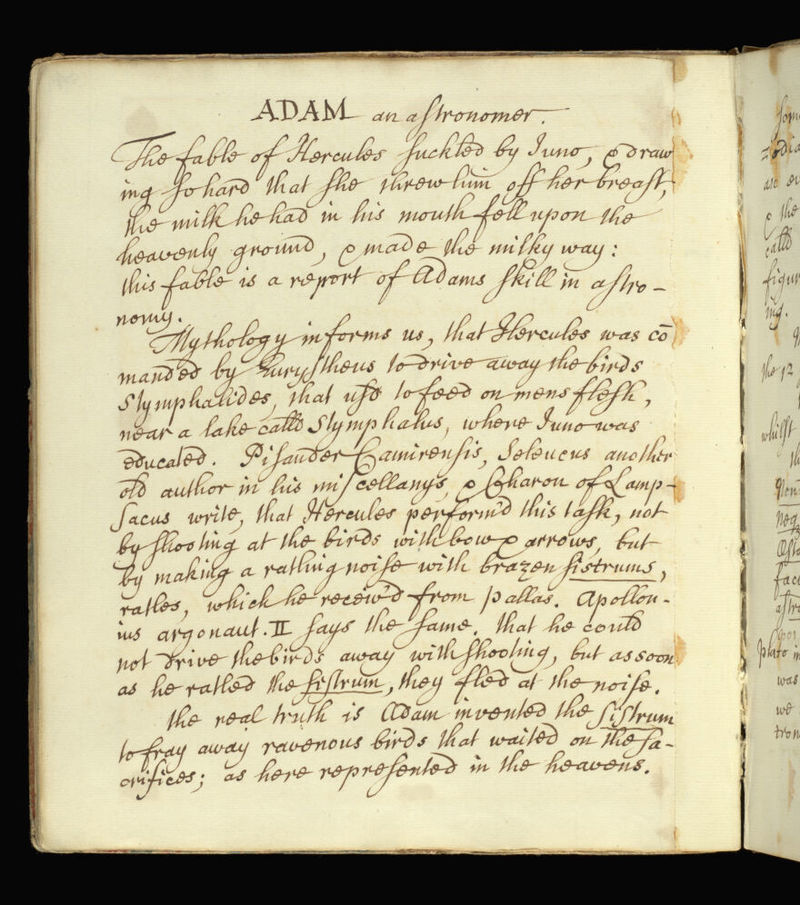 ADAM an astronomer.
The fable of Hercules suckled by Juno, & draw
ing so hard that she threw him off her breast,
the milk he had in his mouth fell upon the
heavenly ground, & made the milky way:
this fable is a report of Adams skill in astro-
nomy.
Mythology informs us, that Hercules was cō
manded by Eurystheus to drive away the birds
Stymphalides, that usd to feed on mens flesh,
near a lake calld Stymphalus, where Juno was
educated. Pisander Camirensis, Seleucus another
old author in his miscellanys, & Charon of Lamp-
sacus write, that Hercules perform'd this task, not
by shooting at the birds with bow & arrows, but
by making a ratling noise with brazen sistrums,
ratles, which he receiv'd from pallas. Apollon-
ius argonaut. II says the same. that he could
not drive the birds away with shooting, but as soon
as he ratled the sistrum, they fled at the noise.
the real truth is Adam invented the sistrum
to fray away ravenous birds that waited on the sa-
crifices; as here represented in the heavens.
some
the
calld
figur
ing.
the 12
whilst
plato in
was
we
tron